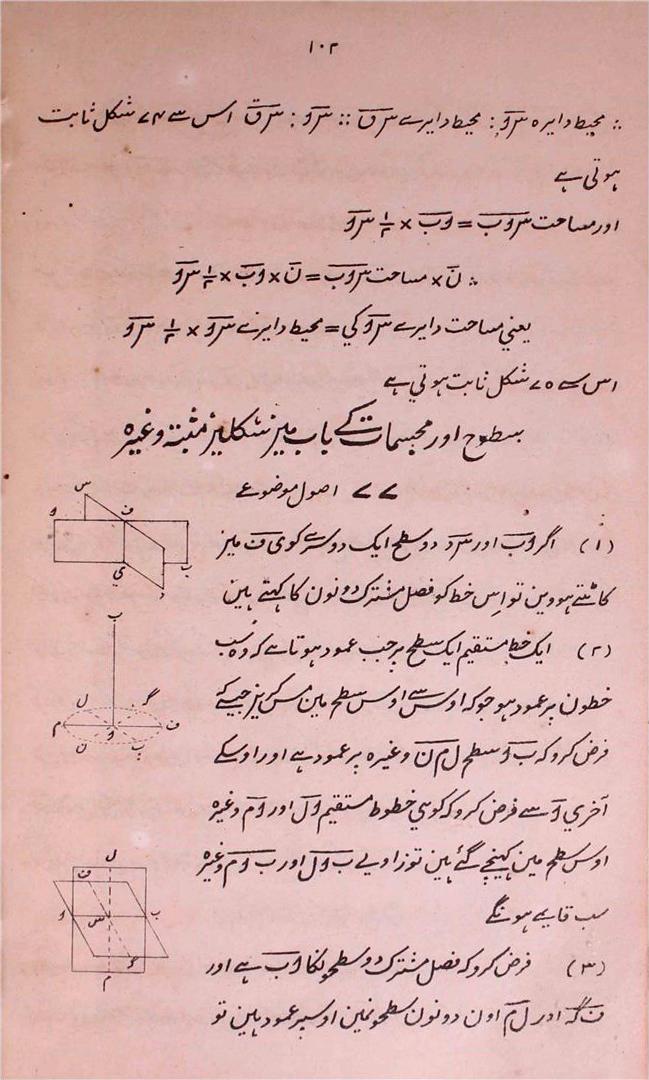 ۱۰۲
∴ محیط دایرہ س و : محیط دایرے س ق :: س و : س ق اس سے ۷۴ شکل ثابت
ہوتی ہے
اور مساحت س و ب = و ب × ۱/۲ س و
∴ ن × مساحت س و ب = ن × و ب × ۱/۲ س و
یعني مساحت دایرے س و کي = محیط دایرے س و × ۱/۲ س و
اس سے ۷۵ شکل ثابت ہوتي ہے
سطوح اور مجسمات کے باب میں شکلیں مثبتہ وغیرہ
۷۷ اصول موضوعے
(۱) اگر و ب اور س د دو سطح ایک دوسرے کو ی ف میں
کاٹتے ہووین تو اِس خط کو فصل مشترک دونون کا کہتے ہین
(۲) ایک خط مستقیم ایک سطح پر جب عمود ہوتا ہے کہ وہ سب
خطون پر عمود ہو جو کہ اوس سے اوس سطح مین مس کریں جیسے
فرض کرو کہ ب و سطح ل م ن وغیرہ پر عمود ہے اور اوسکے
آخري و سے فرض کرو کہ کوئي خطوط مستقیم و ل اور و م وغیرہ
اوس سطح مین کھینچے گئے ہین تو زاویے ب و ل اور ب و م وغیرہ
سب قایمے ہونگے
(۳) فرض کرو کہ فصل مشترک دو سطحونکا و ب ہے اور
ف گ اور ل م اون دونون سطحونمین اوسپر عمود ہین تو